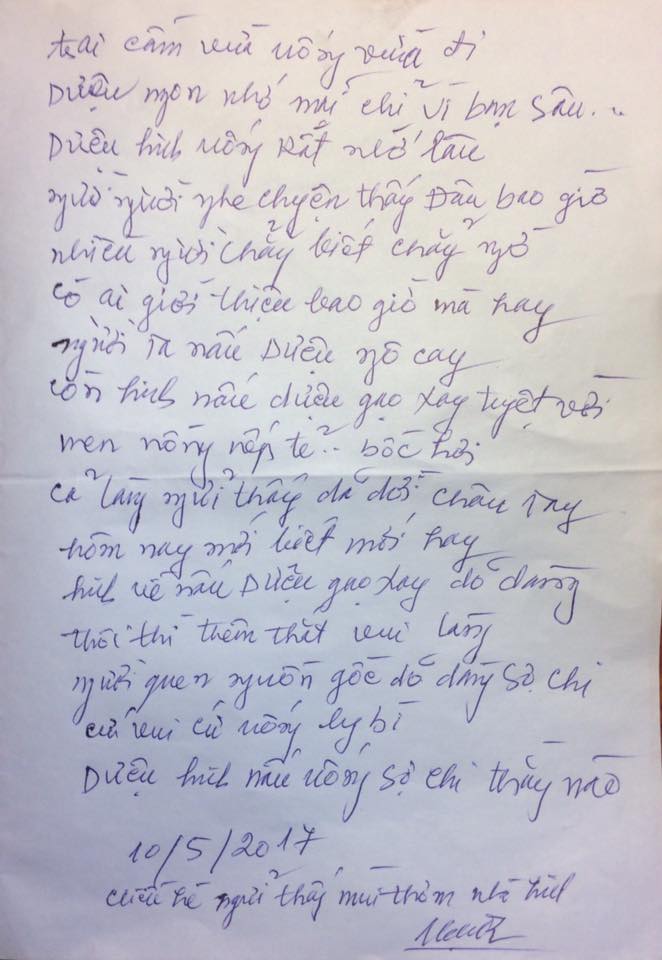 tai cầm vừa uống vừa đi
Dượu ngon nhớ mãi chỉ vì bạn sâu..
Dượu hinh uống Rất nhớ lâu
người người nghe chyện thấy Đâu bao giờ
nhiều người chẳng biết chẳng ngờ
Có ai giới thiệu bao giờ mà hay
người ta nấu Dượu ngô cay
còn hinh nấu dượu gạo xay tuyệt vời
men nồng nếp tẻ.. bốc hơi
cả làng ngửi thấy dã dời chân tay
hôm nay mới biết mới hay
hinh về nấu Dượu gạo xay đó dàng
thôi thì thêm thắt vui làng
người quen nguồn gốc đó dàng sợ chi
cứ vui cứ uống ly bì
Dượu hinh nấu uống sợ chi thằng nào
10/5/2017
chiều hè ngửi thấy mùi thơm nhà hinh